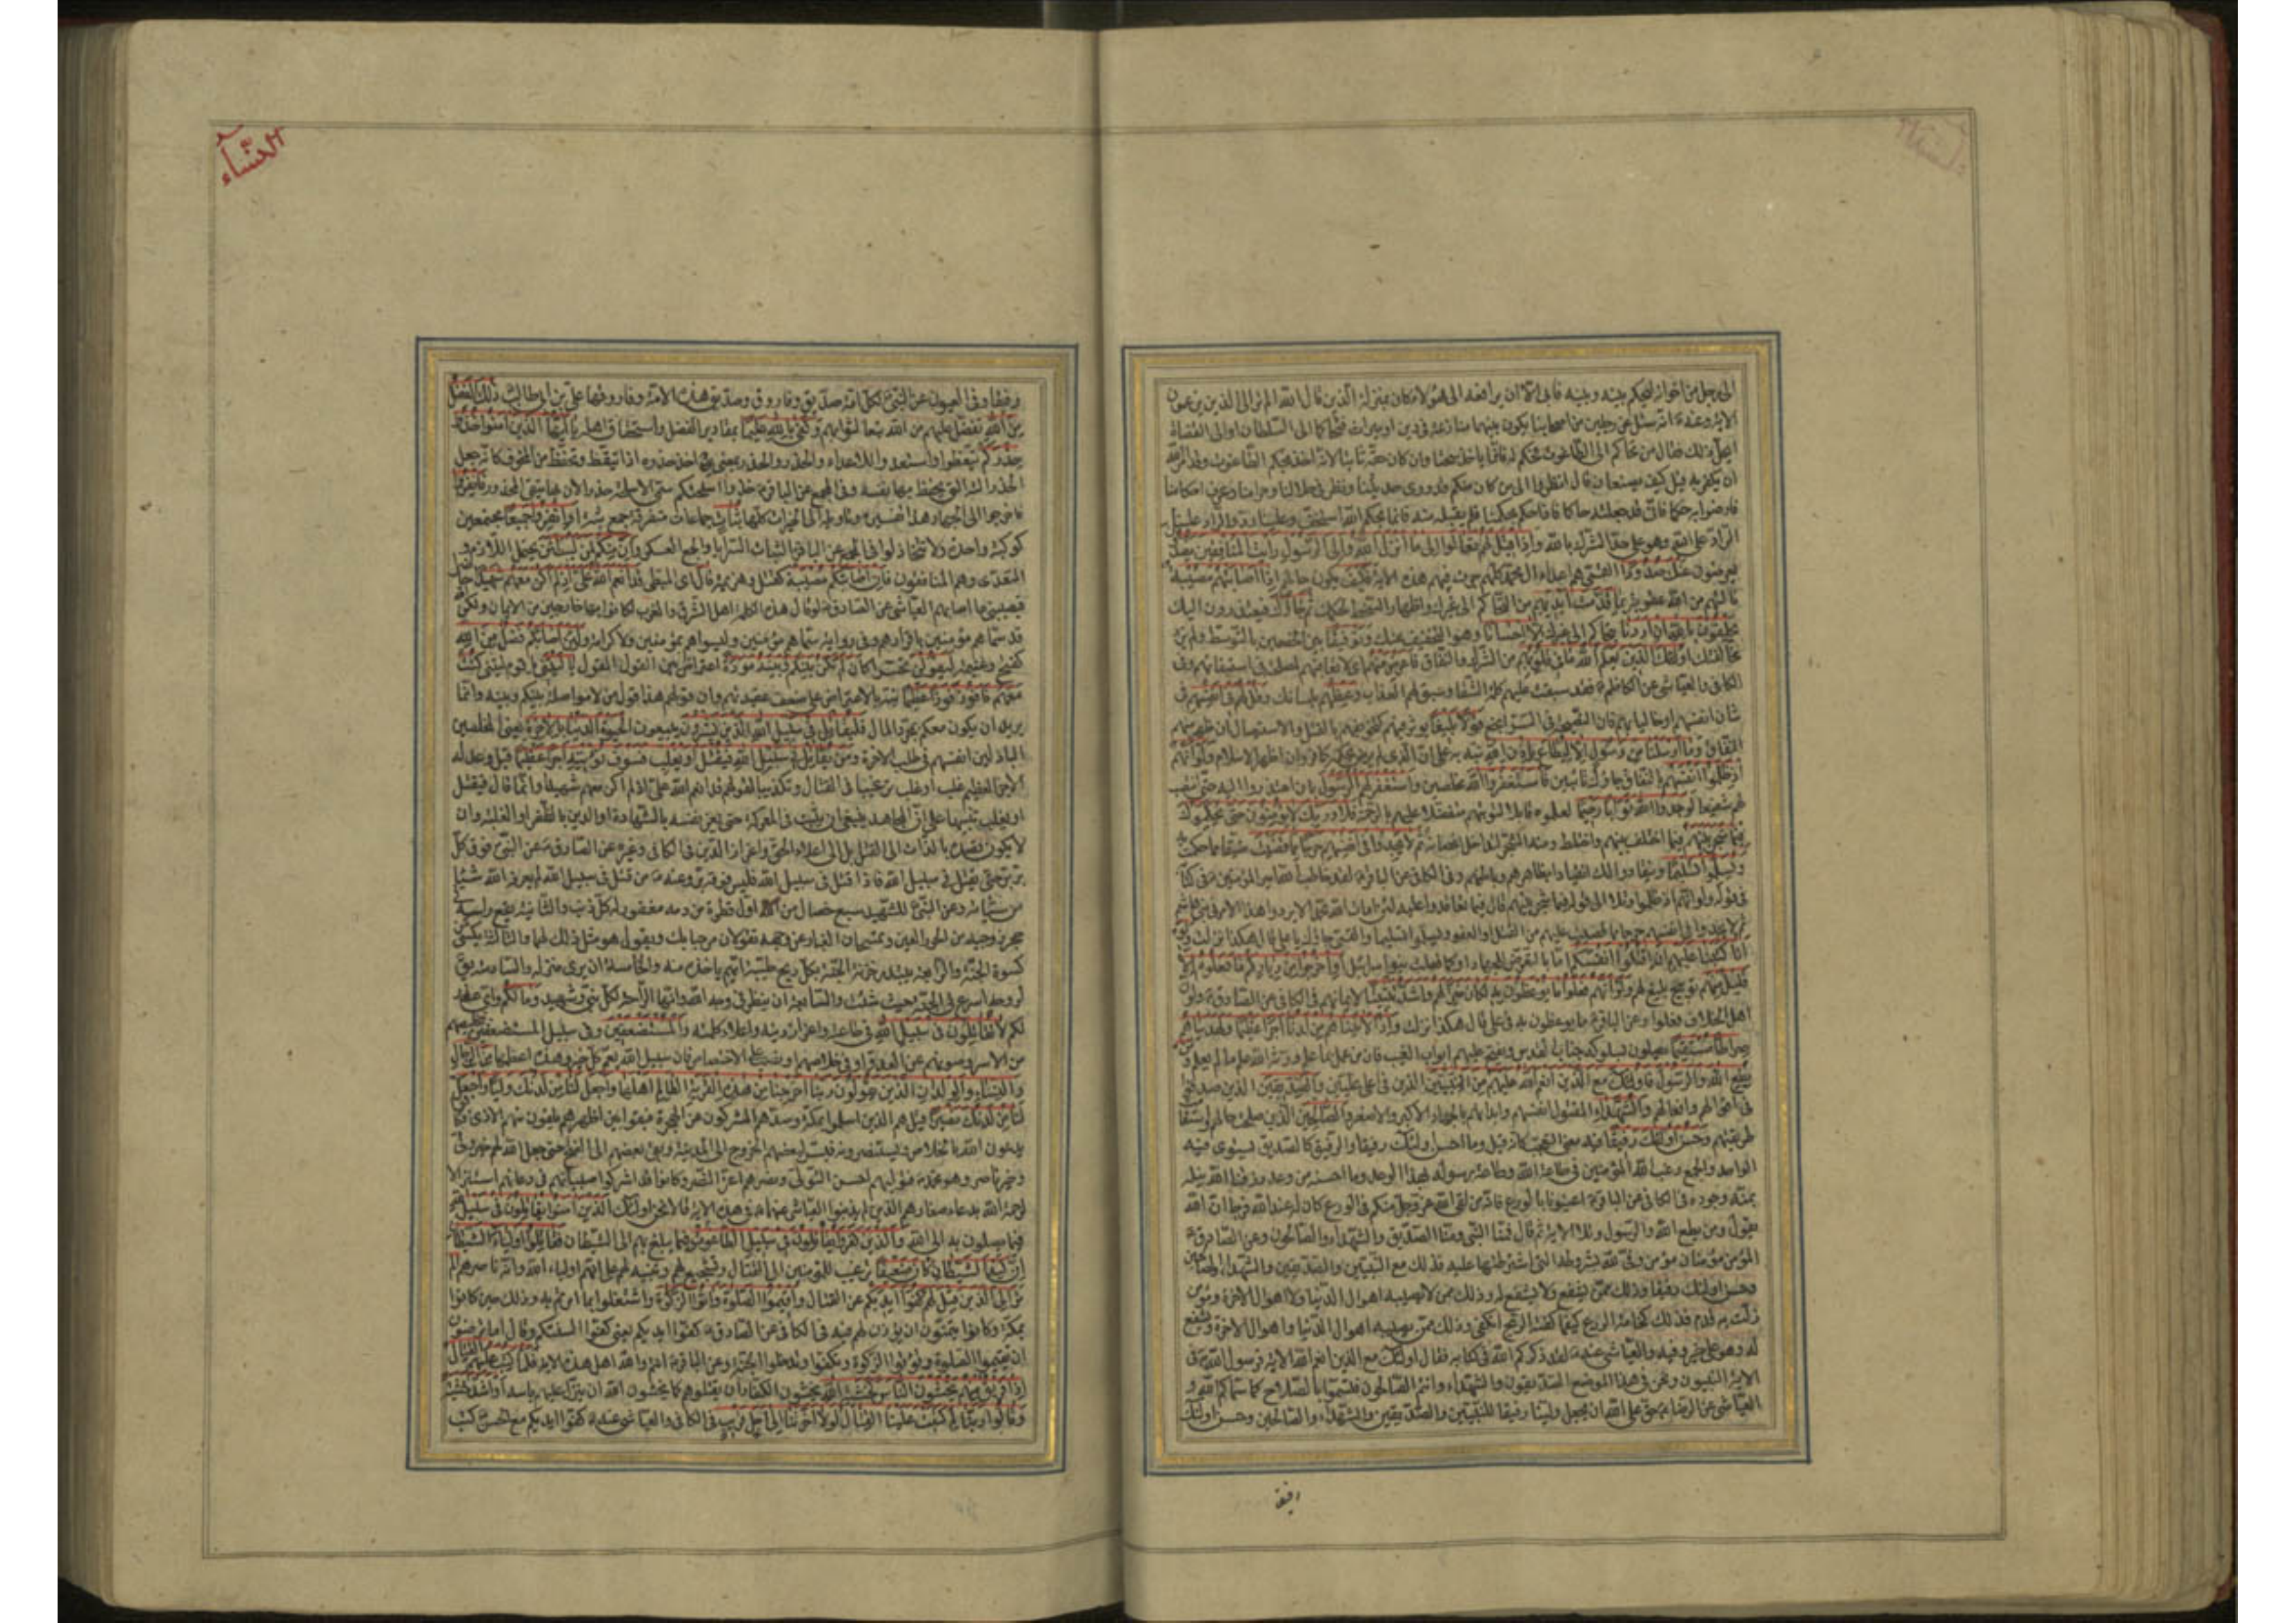 الى رجل من اخوانه ليحكم بينه وبينه فابى الا ان يرافعه الى هؤلاء كان بمنزلة الذين قال الله الم تر الى الذين يزعمون
الاية وعنه انه سئل عن رجلين من اصحابنا يكون بينهما منازعة في دين او ميراث فتحاكما الى السلطان او الى القضاة
ايحل ذلك فقال من تحاكم الى الطاغوت فحكم له فانما ياخذ سحتا وان كان حقه ثابتا لانه اخذ بحكم الطاغوت وقد امر الله
ان يكفر به قيل كيف يصنعان قال انظروا الى من كان منكم قد روى حديثنا ونظر في حلالنا وحرامنا وعرف احكامنا
فارضوا به حكما فاني قد جعلته حاكما فاذا حكم بحكمنا فلم يقبله منه فانما بحكم الله استخف وعلينا رد والراد علينا
الراد على الله وهو على حد الشرك بالله واذا قيل لهم تعالوا الى ما انزل الله والى الرسول رايت المنافقين يصدون
نالتهم من الله عقوبة بما قدمت ايديهم من التحاكم الى غيرك واظهار السخط لحكمك ثم جاؤك فيعتذرون اليك
يحلفون بالله ان اردنا بتحاكم الى غيرك الا احسانا وهو التخفيف عنك وتوفيقا بين الخصمين بالتوسط ولم نرد
مخالفتك اولئك الذين يعلم الله ما في قلوبهم من الشرك والنفاق فاعرض عنهم اي لا تعاقبهم لمصلحة في استبقائهم وفي
الكافي والعياشي عن الكاظم فقد سبقت عليهم كلمة الشقا وسبق لهم العذاب وعظهم بلسانك وقل لهم في انفسهم في
شان انفسهم او خاليا بهم فان النصيحة في السر انجع قولا بليغا يؤثر فيهم كتخويفهم بالقتل والاستيصال ان ظهر منهم
النفاق وما ارسلنا من رسول الا ليطاع باذن الله نبه به على ان الذي لم يرض بحكمه كافر وان اظهر الاسلام ولو انهم
اذ ظلموا انفسهم بالنفاق جاؤك تائبين فاستغفروا الله مخلصين واستغفر لهم الرسول بان اعتذروا اليه حتى انتصب
لهم شفيعا لوجدوا الله توابا رحيما لعلموه قابلا لتوبتهم متفضلا عليهم بالرحمة فلا وربك لا يؤمنون حتى يحكموك
فيما شجر بينهم فيما اختلف بينهم واختلط ومنه الشجر لتداخل اغصانه ثم لا يجدوا في انفسهم حرجا ضيقا مما حكمت به
ويسلموا تسليما وينقادوا لك انقيادا بظاهرهم وباطنهم وفي الكافي عن الباقر لقد خاطب الله امير المؤمنين في كتابه
في قوله ولو انهم اذ ظلموا وتلا الى قوله فيما شجر بينهم قال فيما تعاقدوا عليه لئن امات الله محمدا لا يردوا هذا الامر في بني هاشم
ثم لا يجدوا في انفسهم حرجا مما قضيت عليهم من القتل او العفو ويسلموا تسليما
قليل منهم توبيخ بليغ لهم ولو انهم فعلوا ما يوعظون به لكان خيرا لهم واشد تثبيتا لايمانهم في الكافي عن الصادق ولو ان
اهل الخلاف فعلوا وعن الباقر ما يوعظون به في علي قال هكذا نزلت واذا لاتيناهم من لدنا اجرا عظيما ولهديناهم
صراطا مستقيما يصلون بسلوكه جناب القدس ويفتح عليهم ابواب الغيب فان من عمل بما علم ورثه الله علم ما لم يعلم ومن
يطع الله والرسول فاولئك مع الذين انعم الله عليهم من النبيين الذين في اعلى عليين والصديقين الذين صدقوا
في اقوالهم وافعالهم والشهداء المقتول انفسهم وابدانهم بالجهاد الاكبر والاصغر والصالحين الذين صلحت حالهم واستقامت
طريقتهم وحسن اولئك رفيقا فيه معنى التعجب كانه قيل وما احسن اولئك رفيقا والرفيق كالصديق يستوي فيه
الواحد والجمع رغب الله المؤمنين في طاعة الله وطاعة رسوله بهذا الوعد وما احسنه من وعد رزقنا الله نيله
بمنه وجوده في الكافي عن الباقر اعينونا بالورع فانه من لقى الله عز وجل منكم في الورع كان له عند الله فرجا ان الله
يقول ومن يطع الله والرسول وتلا الاية ثم قال فمنا النبي ومنا الصديق والشهداء والصالحون وعن الصادق
المؤمن مؤمنان مؤمن وفى لله بشروطه التي اشترطها عليه فذلك مع النبيين والصديقين والشهداء والصالحين
وحسن اولئك رفيقا وذلك ممن يشفع ولا يشفع له وذلك ممن لا يصيبه اهوال الدنيا ولا اهوال الاخرة ومؤمن
زلت به قدم فذلك كخامة الزرع كيفما كفته الريح انكفى وذلك ممن يصيبه اهوال الدنيا واهوال الاخرة ويشفع
له وهو على خير وفيه والعياشي عنه لقد ذكركم الله في كتابه فقال اولئك مع الذين انعم الله الاية فرسول الله في
الاية النبيون ونحن في هذا الموضع الصديقون والشهداء وانتم الصالحون فتسموا بالصلاح كما سماكم الله و
العياشي عن الرضا حق على الله ان يجعل ولينا رفيقا للنبيين والصديقين والشهداء والصالحين وحسن اولئك
النساء
رفيقا وفي العيون عن النبي لكل امة صديق وفاروق وصديق هذه الامة وفاروقها علي بن ابي طالب ذلك الفضل
من الله تفضل عليهم من الله تبعا لثوابهم وكفى بالله عليما بمقادير الفضل واستحقاق اهله يا ايها الذين امنوا خذوا
حذركم تيقظوا واستعدوا للاعداء والحذر والحذر بمعنى يق اخذ حذره اذا تيقظ وتحفظ من المخوف كانه جعل
الحذر الته التي يحفظ بها نفسه وفي المجمع عن الباقر خذوا اسلحتكم سمى الاسلحة حذرا لان بها يتقى المحذور فانفروا
فاخرجوا الى الجهاد هذا تفسيره وتاويله الى الخيرات كلها ثبات جماعات متفرقة جمع ثبة او انفروا جميعا مجتمعين
كوكبة واحدة ولا تتخاذلوا في المجمع عن الباقر الثبات السرايا والجمع العسكر وان منكم لمن ليبطئن يحتمل اللازم و
المتعدى وهم المنافقون فان اصابتكم مصيبة كقتل وهزيمة قال اى المبطى قد انعم الله علي اذ لم اكن معهم شهيدا حاضرا
فيصيبني ما اصابهم العياشي عن الصادق لو قال هذه الكلمة اهل الشرق والغرب لكانوا بها خارجين من الايمان ولكن الله
قد سماهم مؤمنين باقرارهم وفي رواية سماهم مؤمنين وليسوا هم بمؤمنين ولا كرامة ولئن اصابكم فضل من الله
كفتح وغنيمة ليقولن تحسرا كان لم تكن بينكم وبينه مودة اعتراض بين القول والمقول يا ليتني يا قوم ليتني كنت
معهم فافوز فوزا عظيما نبه بالاعتراض على ضعف عقيدتهم وان قولهم هذا قول من لا مواصلة بينكم وبينه وانما
يريد ان يكون معكم لمجرد المال فليقاتل في سبيل الله الذين يشرون يبيعون الحيوة الدنيا بالاخرة يعنى المخلصين
الباذلين انفسهم في طلب الاخرة ومن يقاتل في سبيل الله فيقتل او يغلب فسوف نؤتيه اجرا عظيما قيل وعد له
الاجر العظيم غلب او غلب ترغيبا في القتال وتكذيبا لقولهم قد انعم الله علي اذ لم اكن معهم شهيدا وانما قال فيقتل
او يغلب تنبيها على ان المجاهد ينبغي ان يثبت في المعركة حتى يعز نفسه بالشهادة او الدين بالظفر او الغلبة وان
لا يكون قصده بالذات الى القتل بل الى اعلاء الحق واعزاز الدين في الكافي وغيره عن الصادق عن النبي فوق كل
بر بر حتى يقتل في سبيل الله فاذا قتل في سبيل الله فليس فوقه بر وعنه من قتل في سبيل الله لم يعرفه الله شيئا
من سيئاته وعن النبي للشهيد سبع خصال من الله اول قطرة من دمه مغفور له كل ذنب والثانية يقع راسه في
حجر زوجتيه من الحور العين وتمسحان الغبار عن وجهه تقولان مرحبا بك ويقول هو مثل ذلك لهما والثالثة يكسى من
كسوة الجنة والرابعة يبتدره خزنة الجنة بكل ريح طيبة ايهم ياخذه منه والخامسة ان يرى منزله والسادسة يق
لروحه اسرع في الجنة حيث شئت والسابعة ان ينظر في وجه الله وانها الراحة لكل نبي وشهيد وما لكم واى عذر
لكم لا تقاتلون في سبيل الله في طاعته واعزاز دينه واعلاء كلمته والمستضعفين وفي سبيل المستضعفين بتخليصهم
من الاسر وصونهم عن العدو او في خلاصهم ونصب على الاختصاص فان سبيل الله يعم كل خير وهذا اعظمها من الرجال
والنساء والولدان الذين يقولون ربنا اخرجنا من هذه القرية الظالم اهلها واجعل لنا من لدنك وليا واجعل
لنا من لدنك نصيرا قيل هم الذين اسلموا بمكة وصدهم المشركون عن الهجرة فبقوا بين اظهرهم يلقون منهم الاذى فكانوا
يدعون الله بالخلاص ويستنصرونه فيسر لبعضهم الخروج الى المدينة وبقى بعضهم الى الفتح حتى جعل الله لهم خير ولى
وخير ناصر وهو محمد فتوليهم احسن التولى ونصرهم اعز النصر وكانوا قد اشركوا صبيانهم في دعائهم استنزالا
لرحمة الله بدعاء صغارهم الذين لم يذنبوا العياشي عنهما في هذه الاية قالا نحن اولئك الذين امنوا يقاتلون في سبيل الله
فيما يصلون به الى الله والذين كفروا يقاتلون في سبيل الطاغوت فيما يبلغ بهم الى الشيطان فقاتلوا اولياء الشيطان
ان كيد الشيطان كان ضعيفا ترغيب للمؤمنين الى القتال وتشجيع لهم وتنبيه لهم على انهم اولياء الله وانه ناصرهم الم
تر الى الذين قيل لهم كفوا ايديكم عن القتال واقيموا الصلوة واتوا الزكوة واشتغلوا بما امرتم به وذلك حين كانوا
بمكة وكانوا يتمنون ان يؤذن لهم فيه في الكافي عن الصادق كفوا ايديكم يعنى كفوا السنتكم وقال اما ترضون
ان تقيموا الصلوة وتؤتوا الزكوة وتكفوا وتدخلوا الجنة وعن الباقر انتم والله اهل هذه الاية فلما كتب عليهم القتال
اذا فريق منهم يخشون الناس كخشية الله يخشون الكفار ان يقتلوهم كما يخشون الله ان ينزل عليهم باسه او اشد خشية
وقالوا ربنا لم كتبت علينا القتال لولا اخرتنا الى اجل قريب في الكافي والعياشي عنه كفوا ايديكم مع الحسن كتب